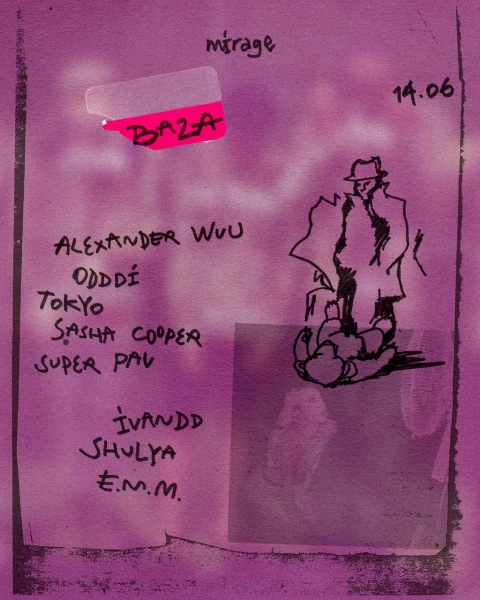 mirage
14.06
BAZA
ALEXANDER WUU
ODDDÍ
TOKYO
SASHA COOPER
SUPER PAV
İVANDD
SHULYA
E.M.M.